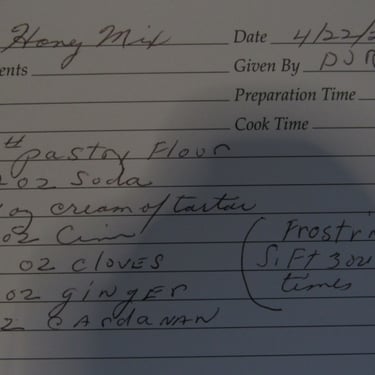 Honey Mix Date 4/22/2
ents Given By DJR
Preparation Time
Cook Time
# pastry Flour
oz Soda
oz cream of tartar
oz Cin
oz cloves
oz ginger
z CARDANAN
( Frostin
Sift 3 or
times